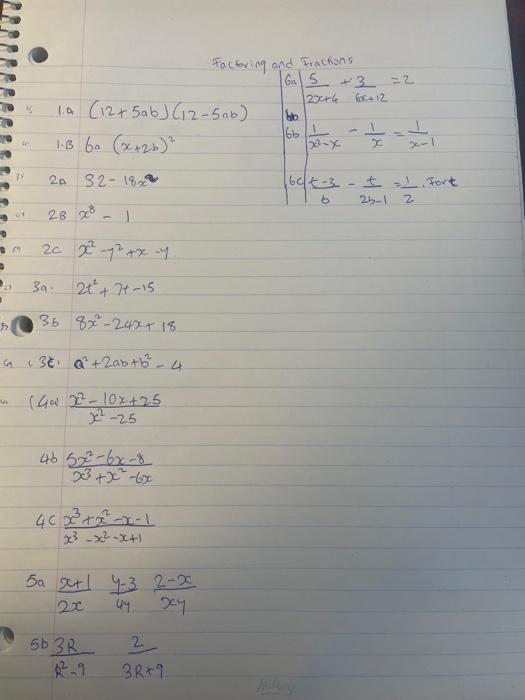 Factoring and Fractions
1.A (12+5ab)(12-5ab)
1.B 6a (x+2b)²
2a 32-18x²
2B x⁸ - 1
2c x²-y²+x-y
3a. 2t²+7t-15
3b 8x²-24x+18
3c. a²+2ab+b²-4
4a) x²-10x+25
x²-25
4b 5x²-6x-8
x³+x²-6x
4c x³+x²-x-1
x³-x²-x+1
5a x+1 y-3 2-x
2x 4y xy
5b 3R 2
R²-9 3R+9
6a 5 + 3 = 2
2x+4 6x+12
6b 1 - 1 = 1
x²-x x x-1
6c t-3 - t = 1, for t
b 2b-1 2